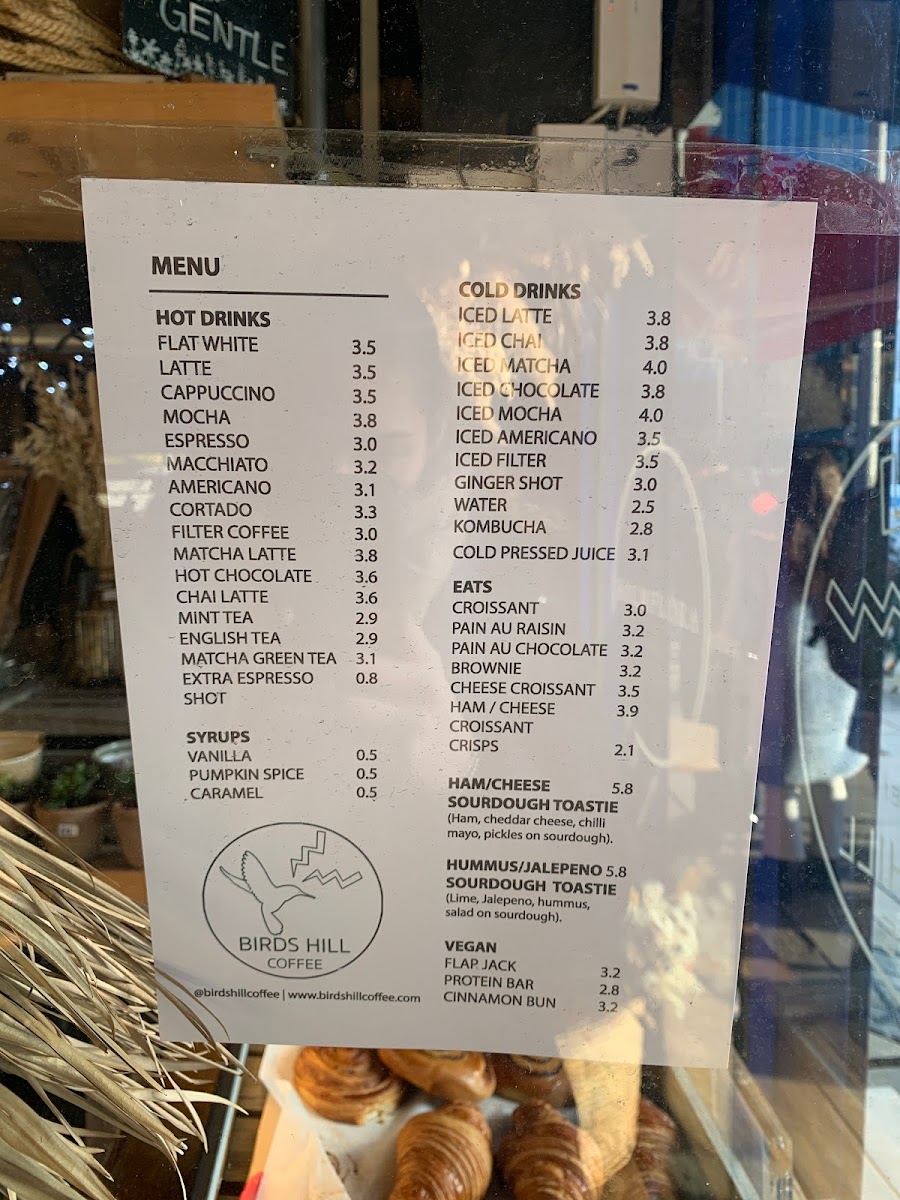 GENTLE
MENU
HOT DRINKS
FLAT WHITE 3.5
LATTE 3.5
CAPPUCCINO 3.5
MOCHA 3.8
ESPRESSO 3.0
MACCHIATO 3.2
AMERICANO 3.1
CORTADO 3.3
FILTER COFFEE 3.0
MATCHA LATTE 3.8
HOT CHOCOLATE 3.6
CHAI LATTE 3.6
MINT TEA 2.9
ENGLISH TEA 2.9
MATCHA GREEN TEA 3.1
EXTRA ESPRESSO 0.8
SHOT
SYRUPS
VANILLA 0.5
PUMPKIN SPICE 0.5
CARAMEL 0.5
BIRDS HILL
COFFEE
@birdshillcoffee | www.birdshillcoffee.com
COLD DRINKS
ICED LATTE 3.8
ICED CHAI 3.8
ICED MATCHA 4.0
ICED CHOCOLATE 3.8
ICED MOCHA 4.0
ICED AMERICANO 3.5
ICED FILTER 3.5
GINGER SHOT 3.0
WATER 2.5
KOMBUCHA 2.8
COLD PRESSED JUICE 3.1
EATS
CROISSANT 3.0
PAIN AU RAISIN 3.2
PAIN AU CHOCOLATE 3.2
BROWNIE 3.2
CHEESE CROISSANT 3.5
HAM / CHEESE 3.9
CROISSANT
CRISPS 2.1
HAM/CHEESE 5.8
SOURDOUGH TOASTIE
(Ham, cheddar cheese, chilli
mayo, pickles on sourdough).
HUMMUS/JALEPENO 5.8
SOURDOUGH TOASTIE
(Lime, Jalepeno, hummus,
salad on sourdough).
VEGAN
FLAP JACK 3.2
PROTEIN BAR 2.8
CINNAMON BUN 3.2